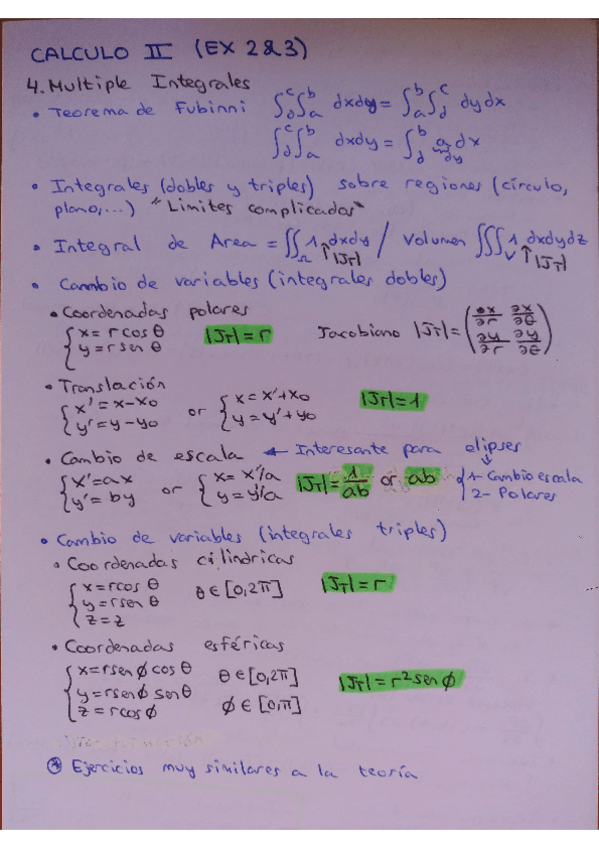 CALCULO II (EX 2&3)
4. Multiple Integrales
• Teorema de Fubinni ∫_d^c ∫_a^b dxdy = ∫_a^b ∫_d^c dydx
∫_d^c ∫_a^b dxdy = ∫_d^b a dx
dy
• Integrales (dobles y triples) sobre regiones (círculo,
plano,...) "Limites complicados"
• Integral de Area = ∬_Ω 1 dxdy / Volumen ∭_V 1 dxdydz
↑|J_T| ↑|J_T|
• Cambio de variables (integrales dobles)
• Coordenadas polares
{ x = r cos θ
y = r sen θ |J_T| = r Jacobiano |J_T| = ( ∂x/∂r ∂x/∂θ
∂y/∂r ∂y/∂θ )
• Translación
{ x' = x-x0 or { x = x'+x0 |J_T| = 1
y' = y-y0 y = y'+y0
• Cambio de escala ← Interesante para elipses
{ x' = ax or { x = x'/a |J_T| = 1/ab or ab { 1- Cambio escala
y' = by y = y'/a 2- Polares
• Cambio de variables (integrales triples)
• Coordenadas cilindricas
{ x = r cos θ θ ∈ [0,2π] |J_T| = r
y = r sen θ
z = z
• Coordenadas esféricas
{ x = r sen ϕ cos θ θ ∈ [0,2π] |J_T| = r² sen ϕ
y = r sen ϕ sen θ
z = r cos ϕ ϕ ∈ [0,π]
* Ejercicios muy similares a la teoría